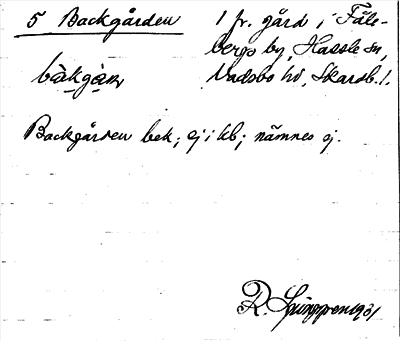 5 Backgården 1 fr. gård i Fåle-
bergs by, Hassle sn,
Vadsbo hd, Skarab. l.
Backgården bek; ej i kb; nämnes ej.
R. 1931